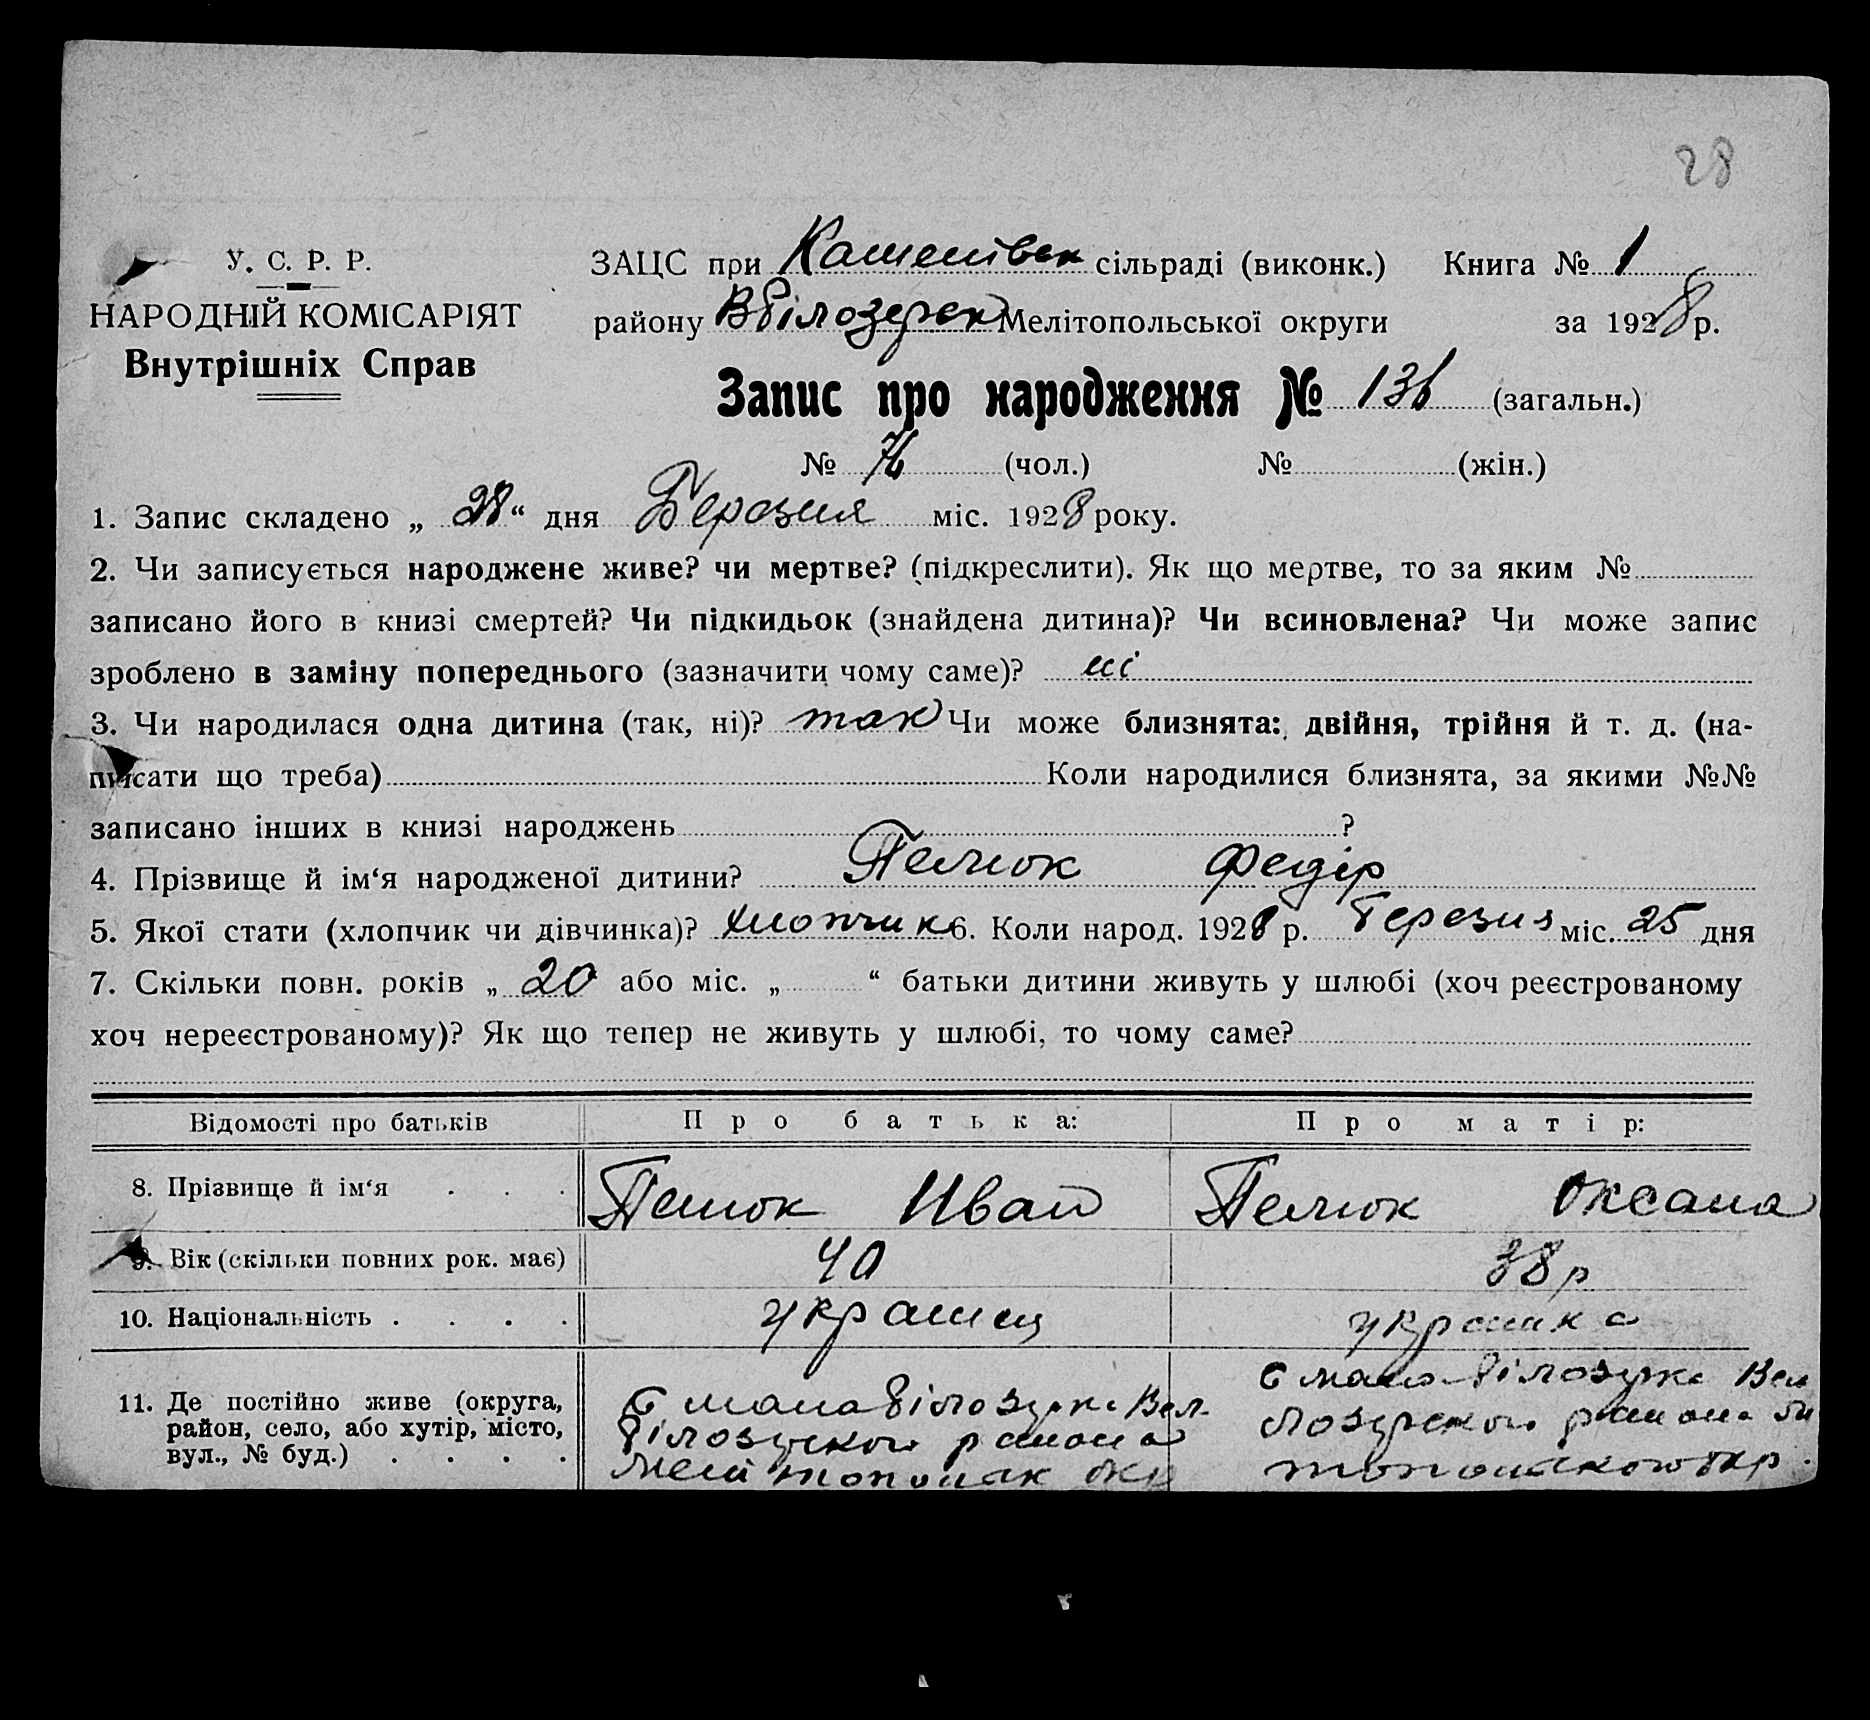 28
У. С. Р. Р.
НАРОДНІЙ КОМІСАРІЯТ
Внутрішніх Справ
ЗАЦС при сільраді (виконк.) Книга № 1
району Вбілозерск Мелітопольської округи за 1928 р.
Запис про народження № 136 (загальн.)
№ 76 (чол.) № (жін.)
1. Запис складено „ 28 “ дня Березня міс. 1928 року.
2. Чи записується народжене живе? чи мертве? (підкреслити). Як що мертве, то за яким №
записано його в книзі смертей? Чи підкидьок (знайдена дитина)? Чи всиновлена? Чи може запис
зроблено в заміну попереднього (зазначити чому саме)? ні
3. Чи народилася одна дитина (так, ні)? так Чи може близнята: двійня, трійня й т. д. (на-
писати що треба) Коли народилися близнята, за якими №№
записано інших в книзі народжень ?
4. Прізвище й ім‘я народженої дитини? Пелюк Федір
5. Якої стати (хлопчик чи дівчинка)? хлопчик 6. Коли народ. 1928 р. Березня міс. 25 дня
7. Скільки повн. років „ 20 або міс. „ “ батьки дитини живуть у шлюбі (хоч реєстрованому
хоч нереєстрованому)? Як що тепер не живуть у шлюбі, то чому саме?
Відомості про батьків Про батька: Про матір:
8. Прізвище й ім‘я . . . Пелюк Иван Пелюк Оксана
9. Вік (скільки повних рок. має) 40 38 р
10. Національність . . . . українец українка
11. Де постійно живе (округа,
район, село, або хутір, місто,
вул., № буд.) . . . .
С мала Білозерка Вел.
Білозерског района
Мелітополск окр
С мала Білозерка Вел
района